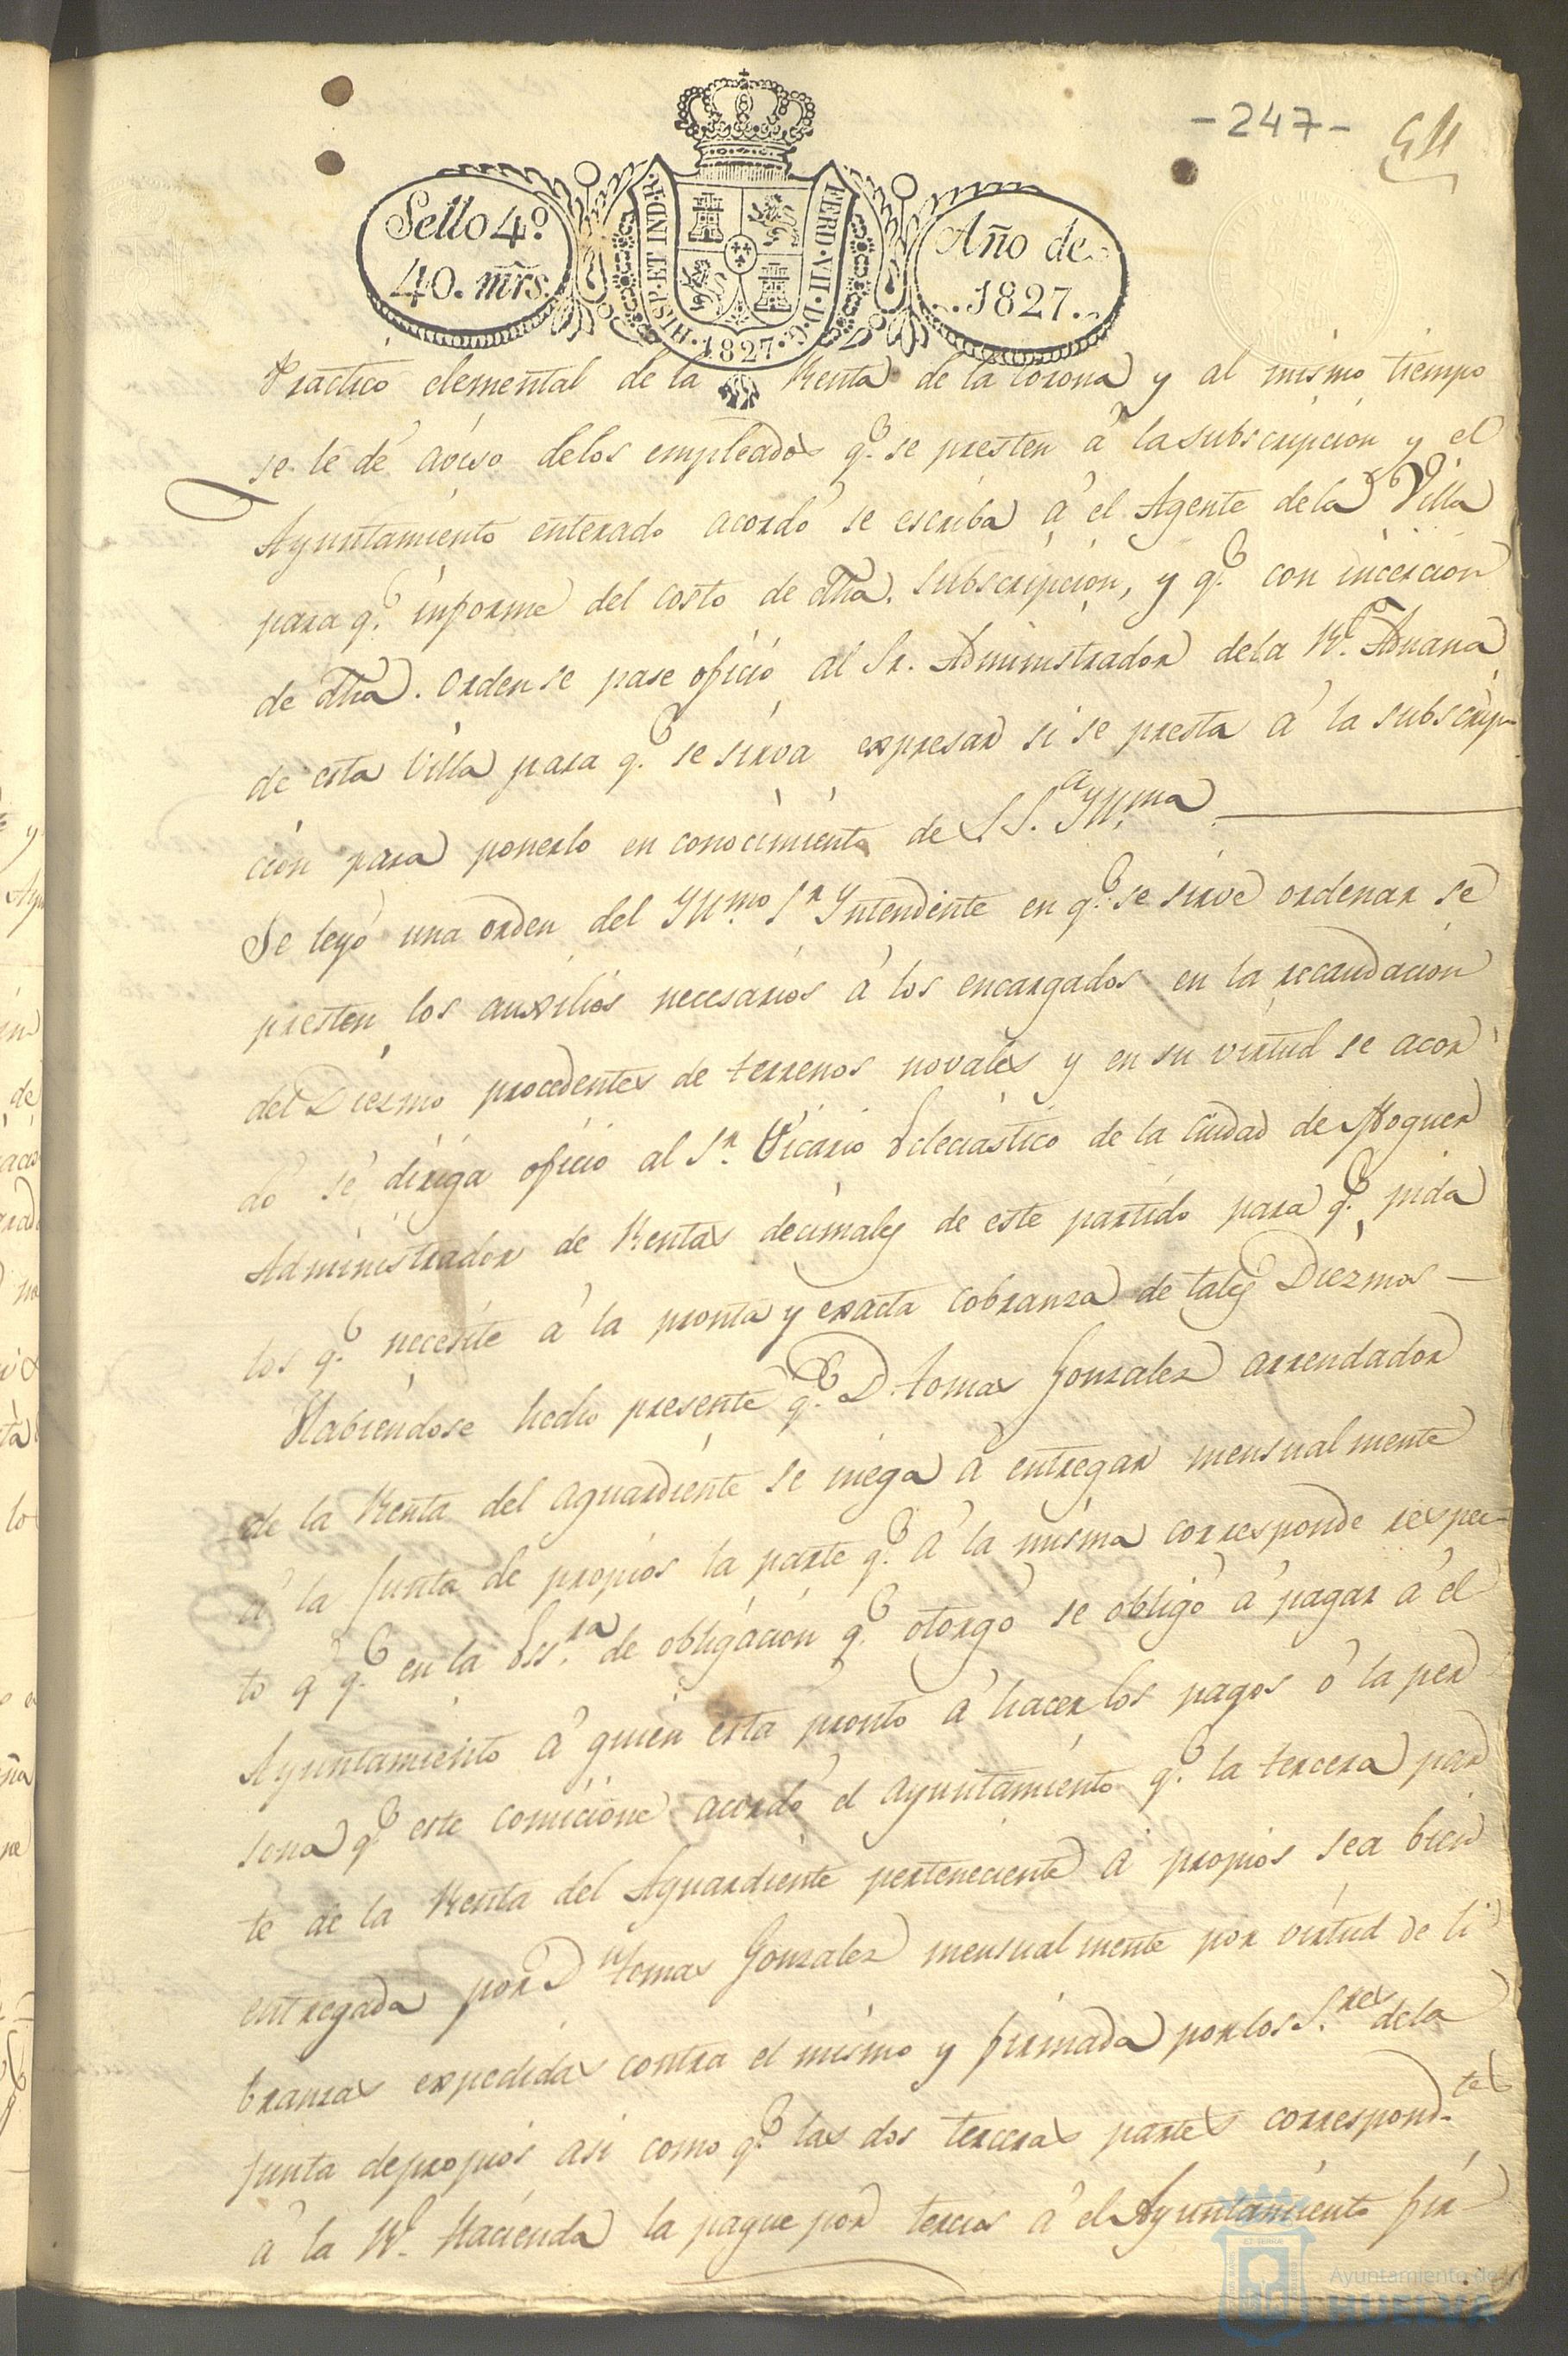 -247-
Sello 4º.
40. mrs.
HISP. ET IND. R.
FERD. VII. D. G.
. 1827 .
Año de
1827.
Practico elemental de la Renta de la Corona y al mismo tiempo
se le dé aviso delos empleados q.e se presten á la subscripcion y el
Ayuntamiento enterado acordó se escriba á el Agente dela Villa
para q.e informe del costo de dha. subscripcion, y q.e con incercion
de dha. orden se pase oficio al Sr. Administrador dela Rl. Aduana
de esta Villa para q.e se sirva expresar si se presta á la subscrip-
cion para ponerlo en conocimiento de S S.a Yll.ma
Se leyó una orden del Yll.mo Sr Yntendente en q.e se sirve ordenar se
presten los auxilios necesarios á los encargados en la recaudacion
del Diezmo procedentes de terrenos novales y en su virtud se acor
dó se dirija oficio al Sr. Vicario Eclesiastico de la Ciudad de Moguer
Administrador de Rentas decimales de este partido para q.e pida
los q.e necesite á la pronta y exacta cobranza de tales Diezmos
Habiendose hecho presente q.e D. Tomas Gonzalez arrendador
de la Renta del aguardiente se niega á entregar mensualmente
á la Junta de propios la parte q.e á la misma corresponde respec-
to á q.e en la Ess.ra de obligacion q.e otorgó se obligó á pagar á el
Ayuntamiento á quien esta pronto á hacer los pagos ó la per
sona q.e este comicione acordó el ayuntamiento q.e la tercera par
te de la Renta del Aguardiente perteneciente á propios sea bien
entregada por Dn Tomas Gonzalez mensualmente por virtud de li
branzas expedidas contra el mismo y firmada por los S.res dela
Junta depropios asi como q.e las dos terceras partes correspond.tes
á la Rl. Hacienda la pague por tercios á el Ayuntamiento fir
Ayuntamiento de
HUELVA